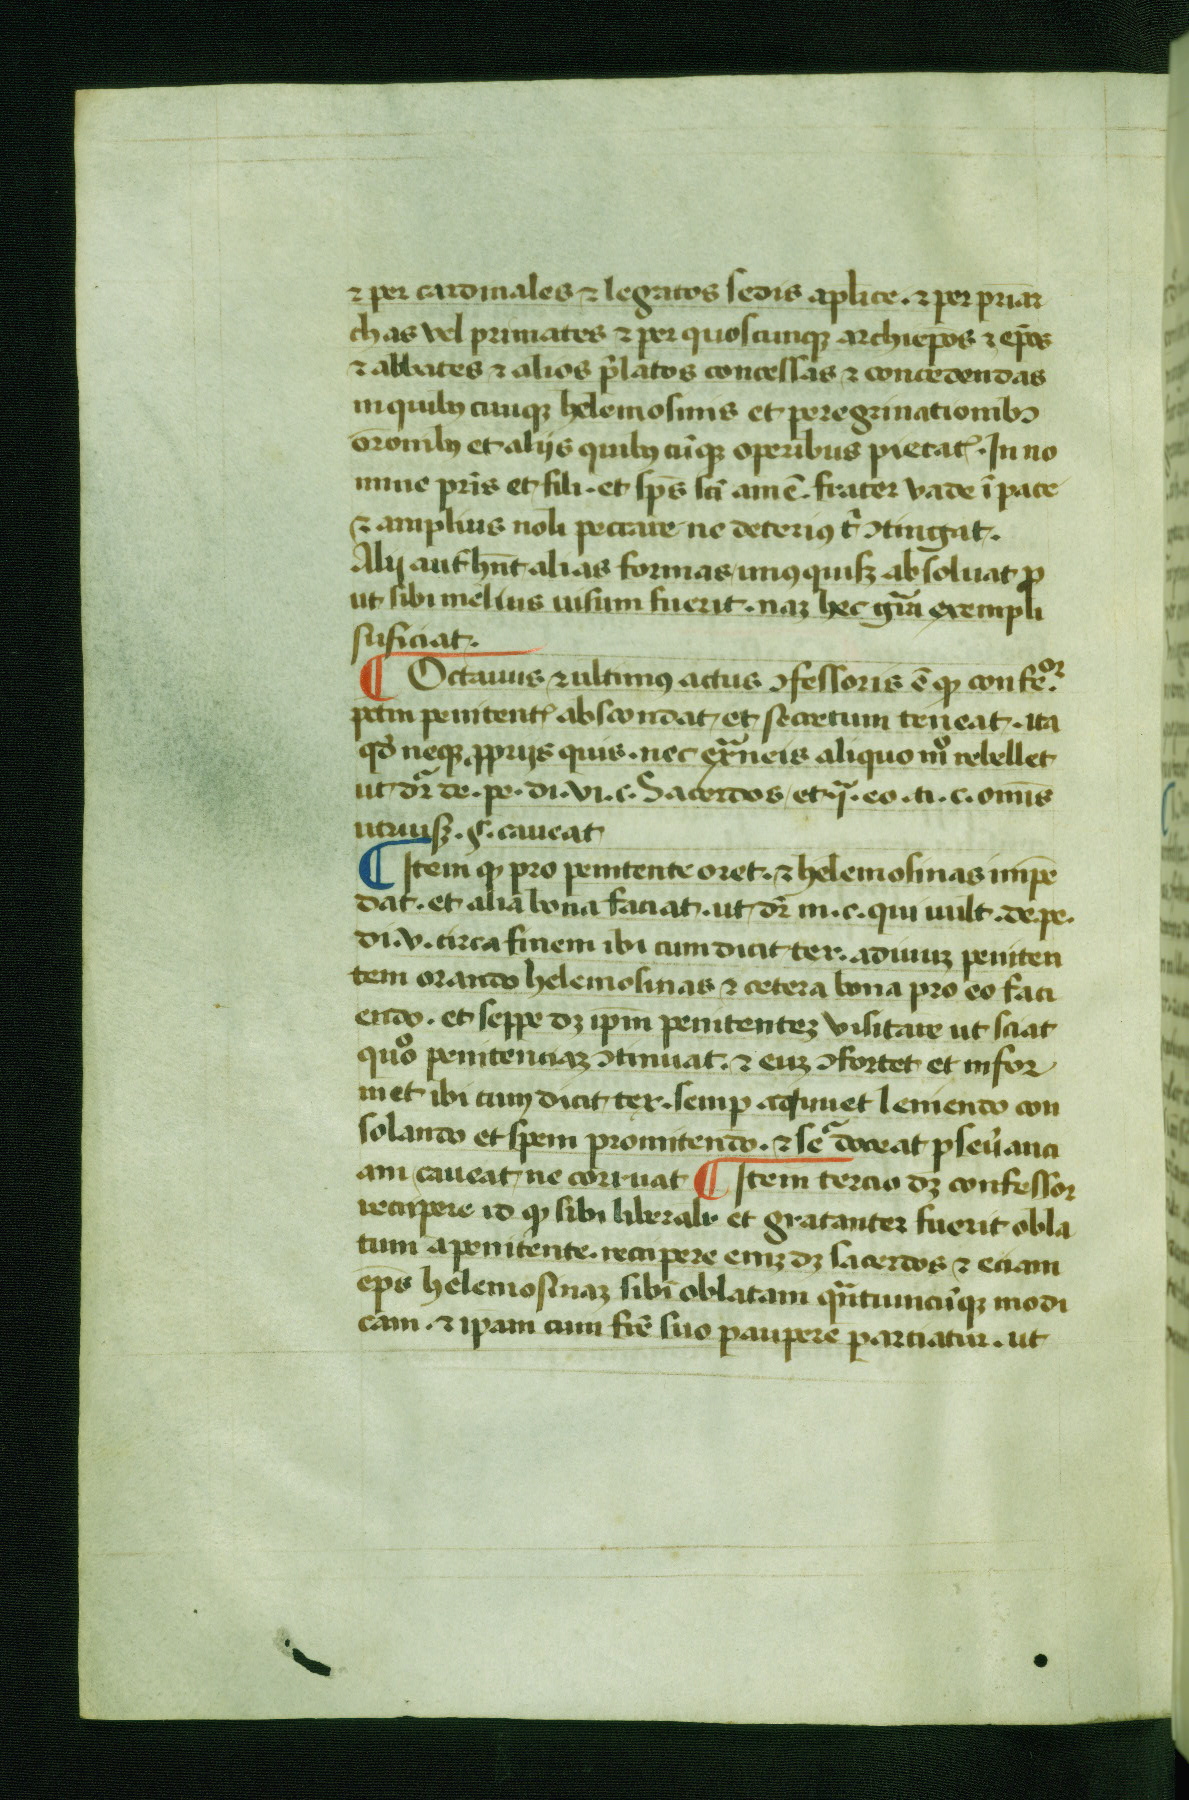 ⁊ per cardinales ⁊ legatos sedis aplice . ⁊ per priar
chas vel primates ⁊ per quoscunqꝫ archiep̄os ⁊ ep̄os
⁊ abbates ⁊ alios p̄latos concessas ⁊ concedendas
in quibꝯ cunqꝫ helemosinis et peregrinationibꝫ
ōronibꝯ et alijs quibꝯ cūqꝫ operibus pietat . In no
mine pr̄is et fili . et sp̄s sc̄i amē . frater vade ī pace
⁊ amplius noli peccare ne deteriꝯ t̄ ꝯtingat .
Alij aut hn̄t alias formas unꝯquisqꝫ absoluat p
ut sibi melius uisum fuerit . naꝫ hec gr̄a exempli
suficiat .
¶ Octauus ⁊ ultimꝯ actus ꝯfessoris ē qꝫ confe .
petm̄ penitent abscondat et secretum teneat . ita
qd̄ neqꝫ ꝓprijs quis . nec ext̄neis aliquo mo rebellet
ut dr̄ de . pe . di . vi . c . Sacerdos et . . eo . ti . c . omīs
utriusqꝫ . §. caueat
¶ Item qꝫ pro penitente oret . ⁊ helemosinas impē
dat . et alia bona faciat . ut dr̄ in . c . qui uult . de . pe .
di . v . circa finem ibi cum dicit ter . adiuuꝫ peniten
tem orando helemosinas ⁊ cetera bona pro eo faci
endo . et seppe dꝫ ipm̄ penitenteꝫ visitare ut sciat
quo penitenciaꝫ ꝯtinuat . ⁊ euꝫ ꝯfortet et infor
met ibi cum dicit ter . semp adiuuet leniendo con
solando et spem promitendo . ⁊ se doceat pseūanci
am caueat ne corruat ¶ Item tercio dꝫ confessor
recipere id qꝫ sibi liberalr et gratanter fuerit obla
tum a penitente . recipere eniꝫ dꝫ sacerdos ⁊ eciam
ep̄s helemosinaꝫ sibi oblatam qn̄tumcūqꝫ modi
cam . ⁊ ipam cum fr̄e suo paupere parciatur . ut